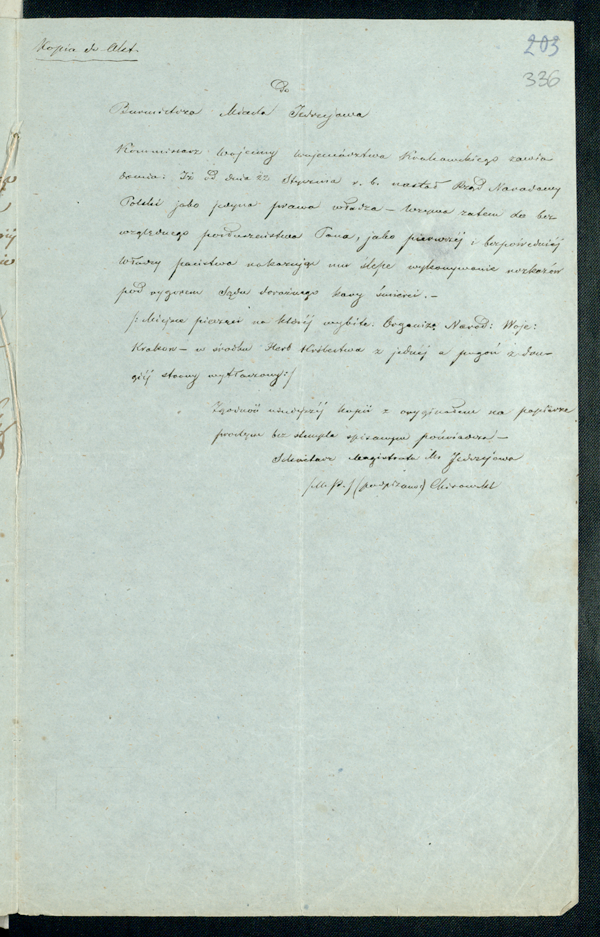 203
336
Kopia do Akt.
Do
Burmistrza Miasta Jędrzejowa
Kommissarz Wojenny Województwa Krakowskiego zawia
damia: Iż od dnia 22 Stycznia r. b. nastał Rząd Narodowy
Polski jako jedyna prawa władza – Wzywa zatem do bez
względnego posłuszeństwa Pana, jako pierwszej i bezpośredniej
Władzy państwa nakazując mu ślepe wykonywanie rozkazów
pod rygorem Sądu doraźnego kary śmierci. –
/: Miejsce pieczęci na której wybite: Organiza: Narod: Woje:
Krakow – w środku Herb Królestwa z jednej a pogoń z dru-
giej strony wytłaczony :/
Zgodność niniejszej kopii z oryginałem na papierze
prostym bez stempla spisanym poświadcza –
Sekretarz Magistratu Ms Jędrzejowa
/M. P./ (podpisano)